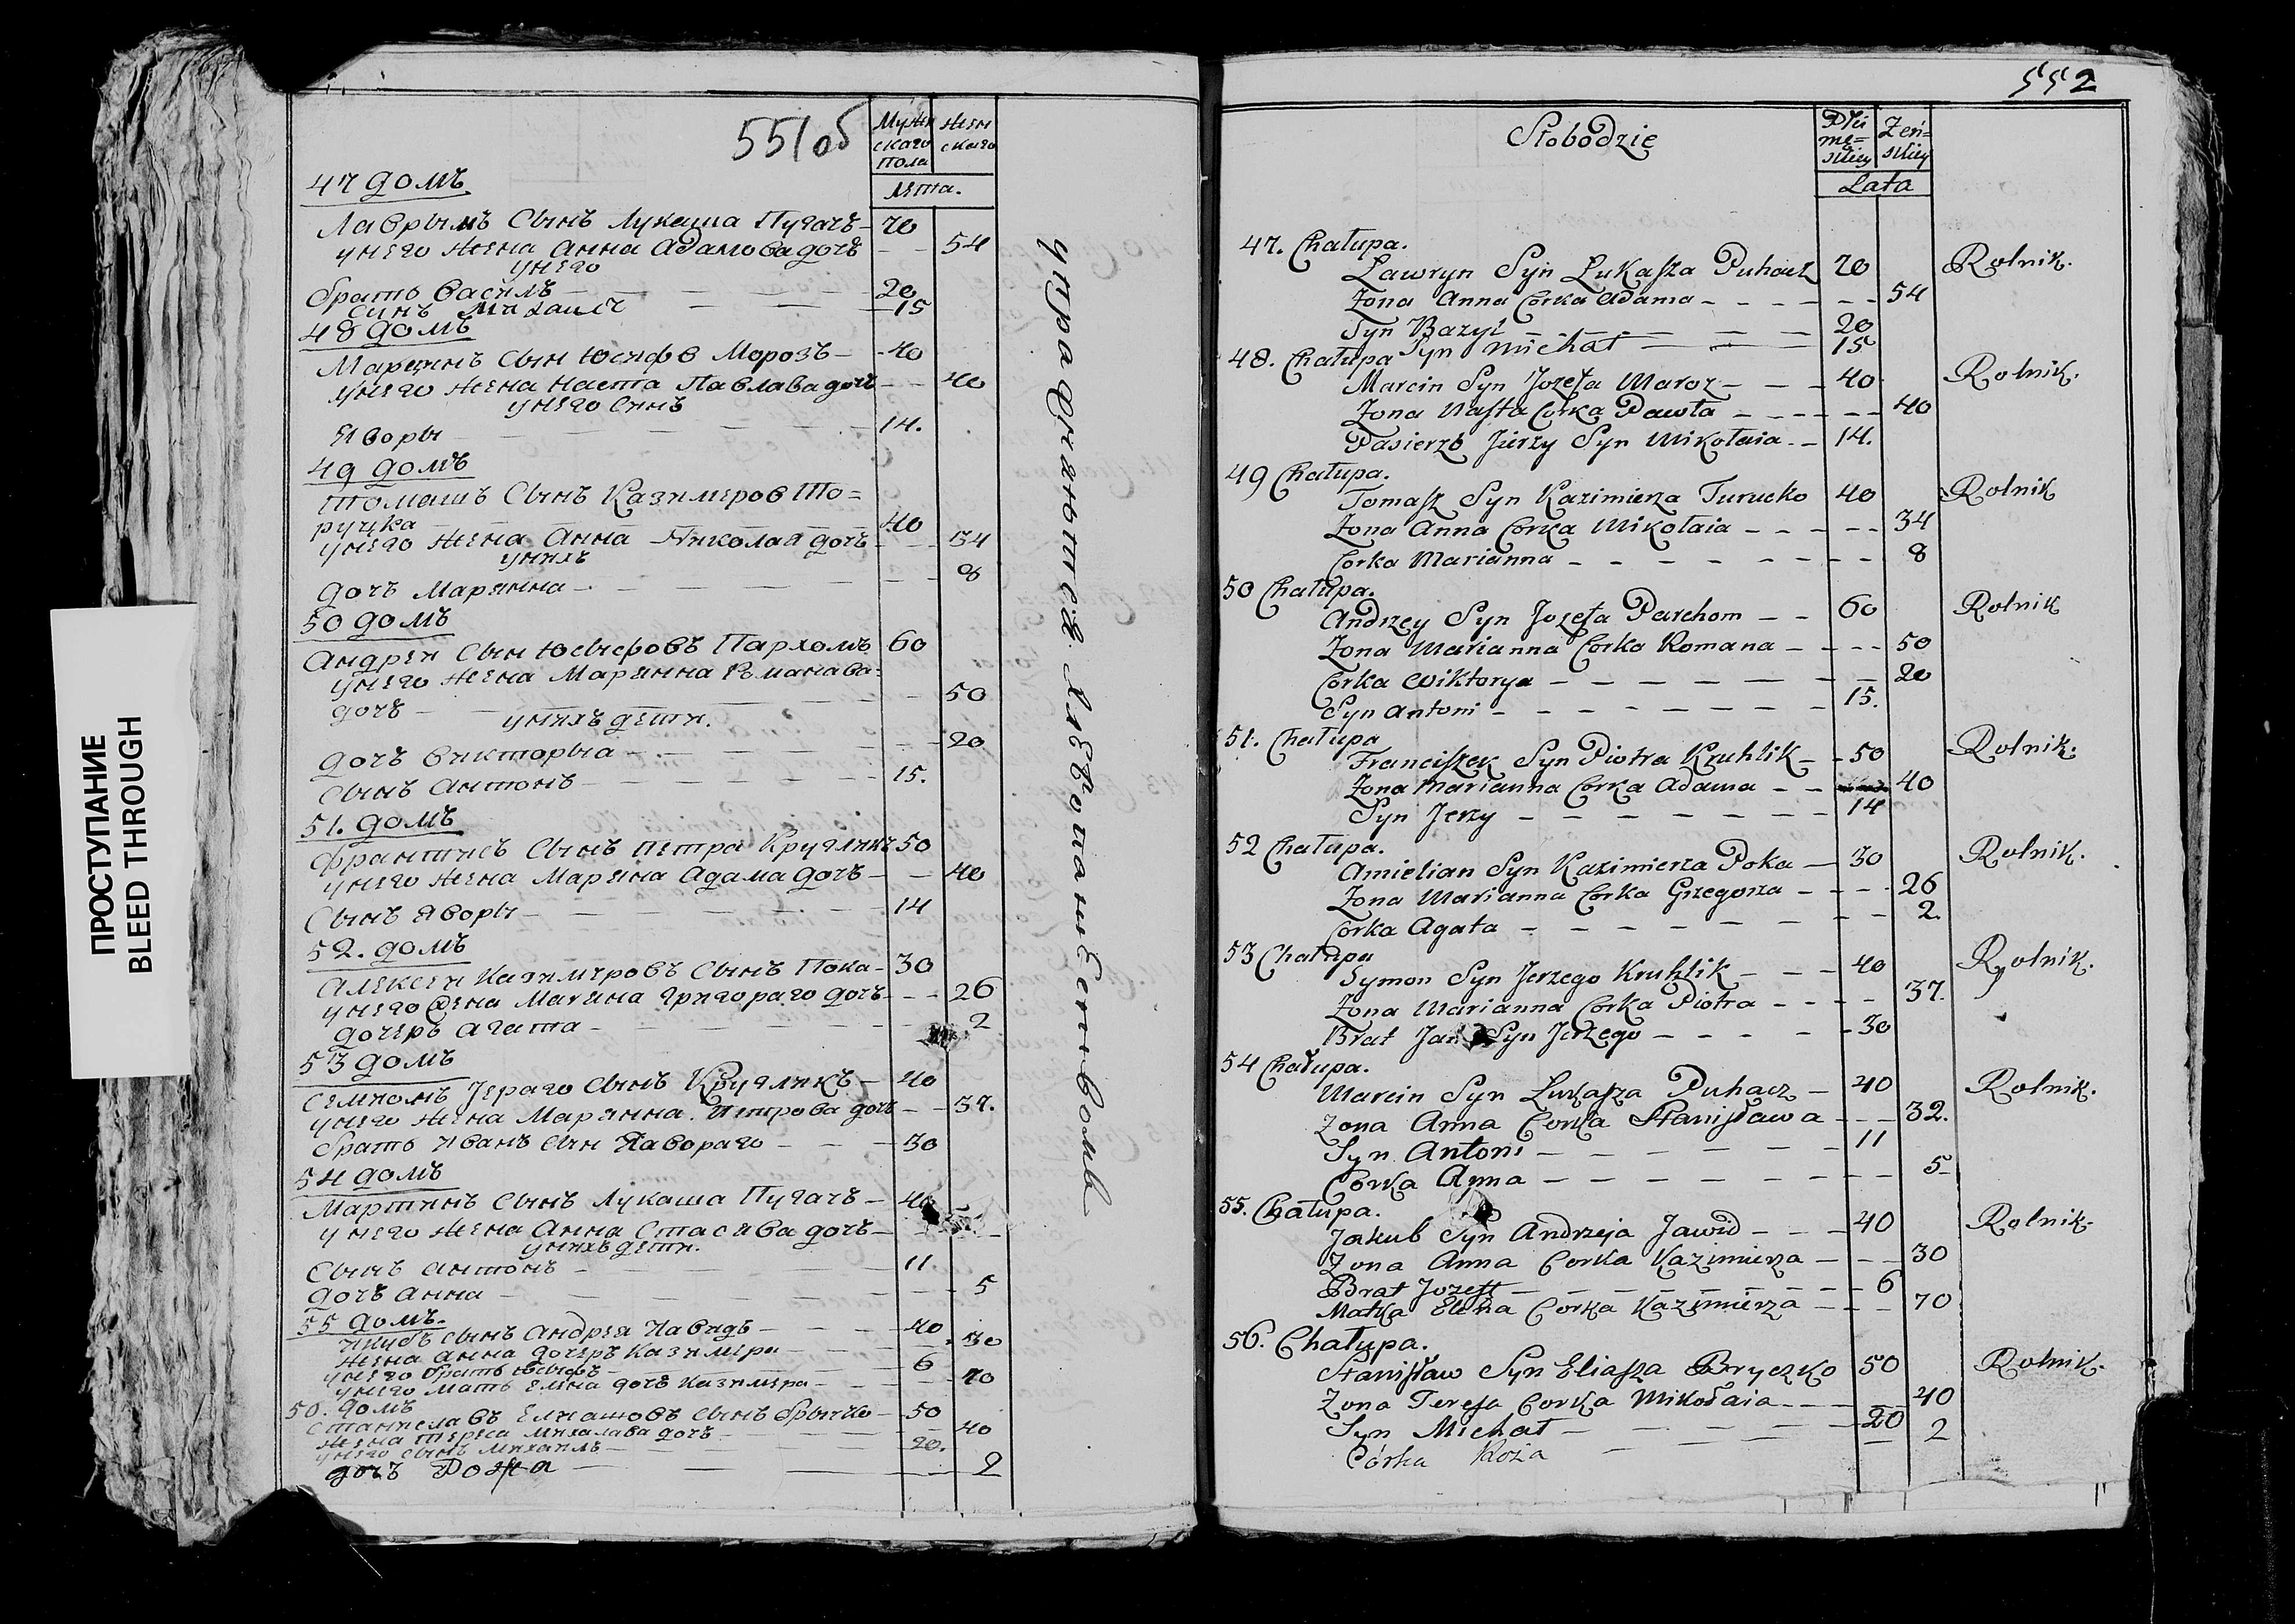 551об
Мужескаго пола
женскаго
лѣта.
47 домъ
Лаврынъ Сынъ Лукаша Пугачъ — 70
унего жена Анна Адамова дочъ — — 54
унего
братъ Василъ — 20
Синъ Михаилъ — 15
48 домъ
Марцинъ Сын Юсифов Морозъ — 40
унего жена Наста Павлава дочъ — — 40
унего Синъ
Яворы — 14.
49 домъ
Томашъ Сынъ Казимеров То=
руцка — 40
унего жена Анна Николая дочъ — — 34
унихъ
дочъ Марянна — — 8
50 домъ
Андреи Сын Юсыфовъ Пархомъ 60
унего жена Марянна Романава=
дочъ — — 50
унихъ дети.
дочъ Викторыа — — 20
Сынъ Антонъ — 15.
51. домъ
Францисъ Сынъ Петра Кругликъ 50
унего жена Марина Адама дочъ — — 40
Сынъ Яворы — 14
52. домъ
Алексеи Казимеровъ Сынъ Пока — 30
унего жена Марина Григораго дочъ — — 26
дочеръ Агата — 2
53 домъ
Семионъ Јераго Сынъ Кругликъ — 40
унего жена Марянна Петрова дочъ — — 37.
братъ Иванъ Сын Явораго — 30
54 домъ
Мартинъ Сынъ Лукаша Пугачъ — 40
унего жена Анна Стасява дочъ — —
унихъ дети.
Сынъ Антонъ — 11
дочъ Анна — — 5
55 домъ.
Якубъ Сынъ Андрея Явидъ — 40
жена Анна дочеръ Казимера — 30
унего братъ Юсыфъ — 6
унего мать Елена дочъ Казимера — 70
50. домъ
Станиславъ Елиашовъ Сынъ Брычко — 50
жена Тереса Михалава дочъ — 40
унего Сынъ Михаилъ — 20.
дочъ Рожа — — 2
управляется Хлѣбопашествомъ
552
Słobodzie
Płci męskiey
Żeńskiey
Lata
47. Chałupa.
Ławryn Syn Łukasza Puhacz 70 Rolnik.
Zona Anna Corka Adama — — 54
Syn Bazyl — 20
Syn Michał — 15
48. Chałupa
Marcin Syn Jozefa Maroz — 40 Rolnik.
Zona Nasta Corka Pawła — — 40
Pasierzb Jierzy Syn Mikołaia — 14.
49 Chałupa.
Tomasz Syn Kazimierza Turucko 40 Rolnik
Zona Anna Corka Mikołaia — — 34
Corka Marianna — — 8
50 Chałupa.
Andrzey Syn Jozefa Parchom — 60 Rolnik
Zona Marianna Corka Romana — — 50
Corka Wiktorya — — 20
Syn Antoni — 15.
51. Chałupa
Franciszek Syn Piotra Kruhlik — 50 Rolnik.
Zona Marianna Corka Adama — — 40
Syn Jerzy — 14
52 Chałupa.
Amielian Syn Kazimierza Poka — 30 Rolnik.
Zona Marianna Corka Grzegorza — — 26
Corka Agata — — 2.
53 Chałupa
Symon Syn Jerzego Kruhlik — 40 Rolnik.
Zona Marianna Corka Piotra — — 37.
Brat Jan Syn Jerzego — 30
54 Chałupa.
Marcin Syn Łukasza Puhacz — 40 Rolnik.
Zona Anna Corka Stanisława — — 32.
Syn Antoni — 11
Corka Anna — — 5
55. Chałupa.
Jakub Syn Andrzeja Jawid — 40 Rolnik.
Zona Anna Corka Kazimierza — — 30
Brat Jozeff — 6
Matka Elena Corka Kazimierza — — 70
56. Chałupa.
Stanisław Syn Eliasza Bryczko 50 Rolnik.
Zona Teresa Corka Mikołaia — — 40
Syn Michał — 20
Córka Roża — 2
ПРОСТУПАНИЕ
BLEED THROUGH